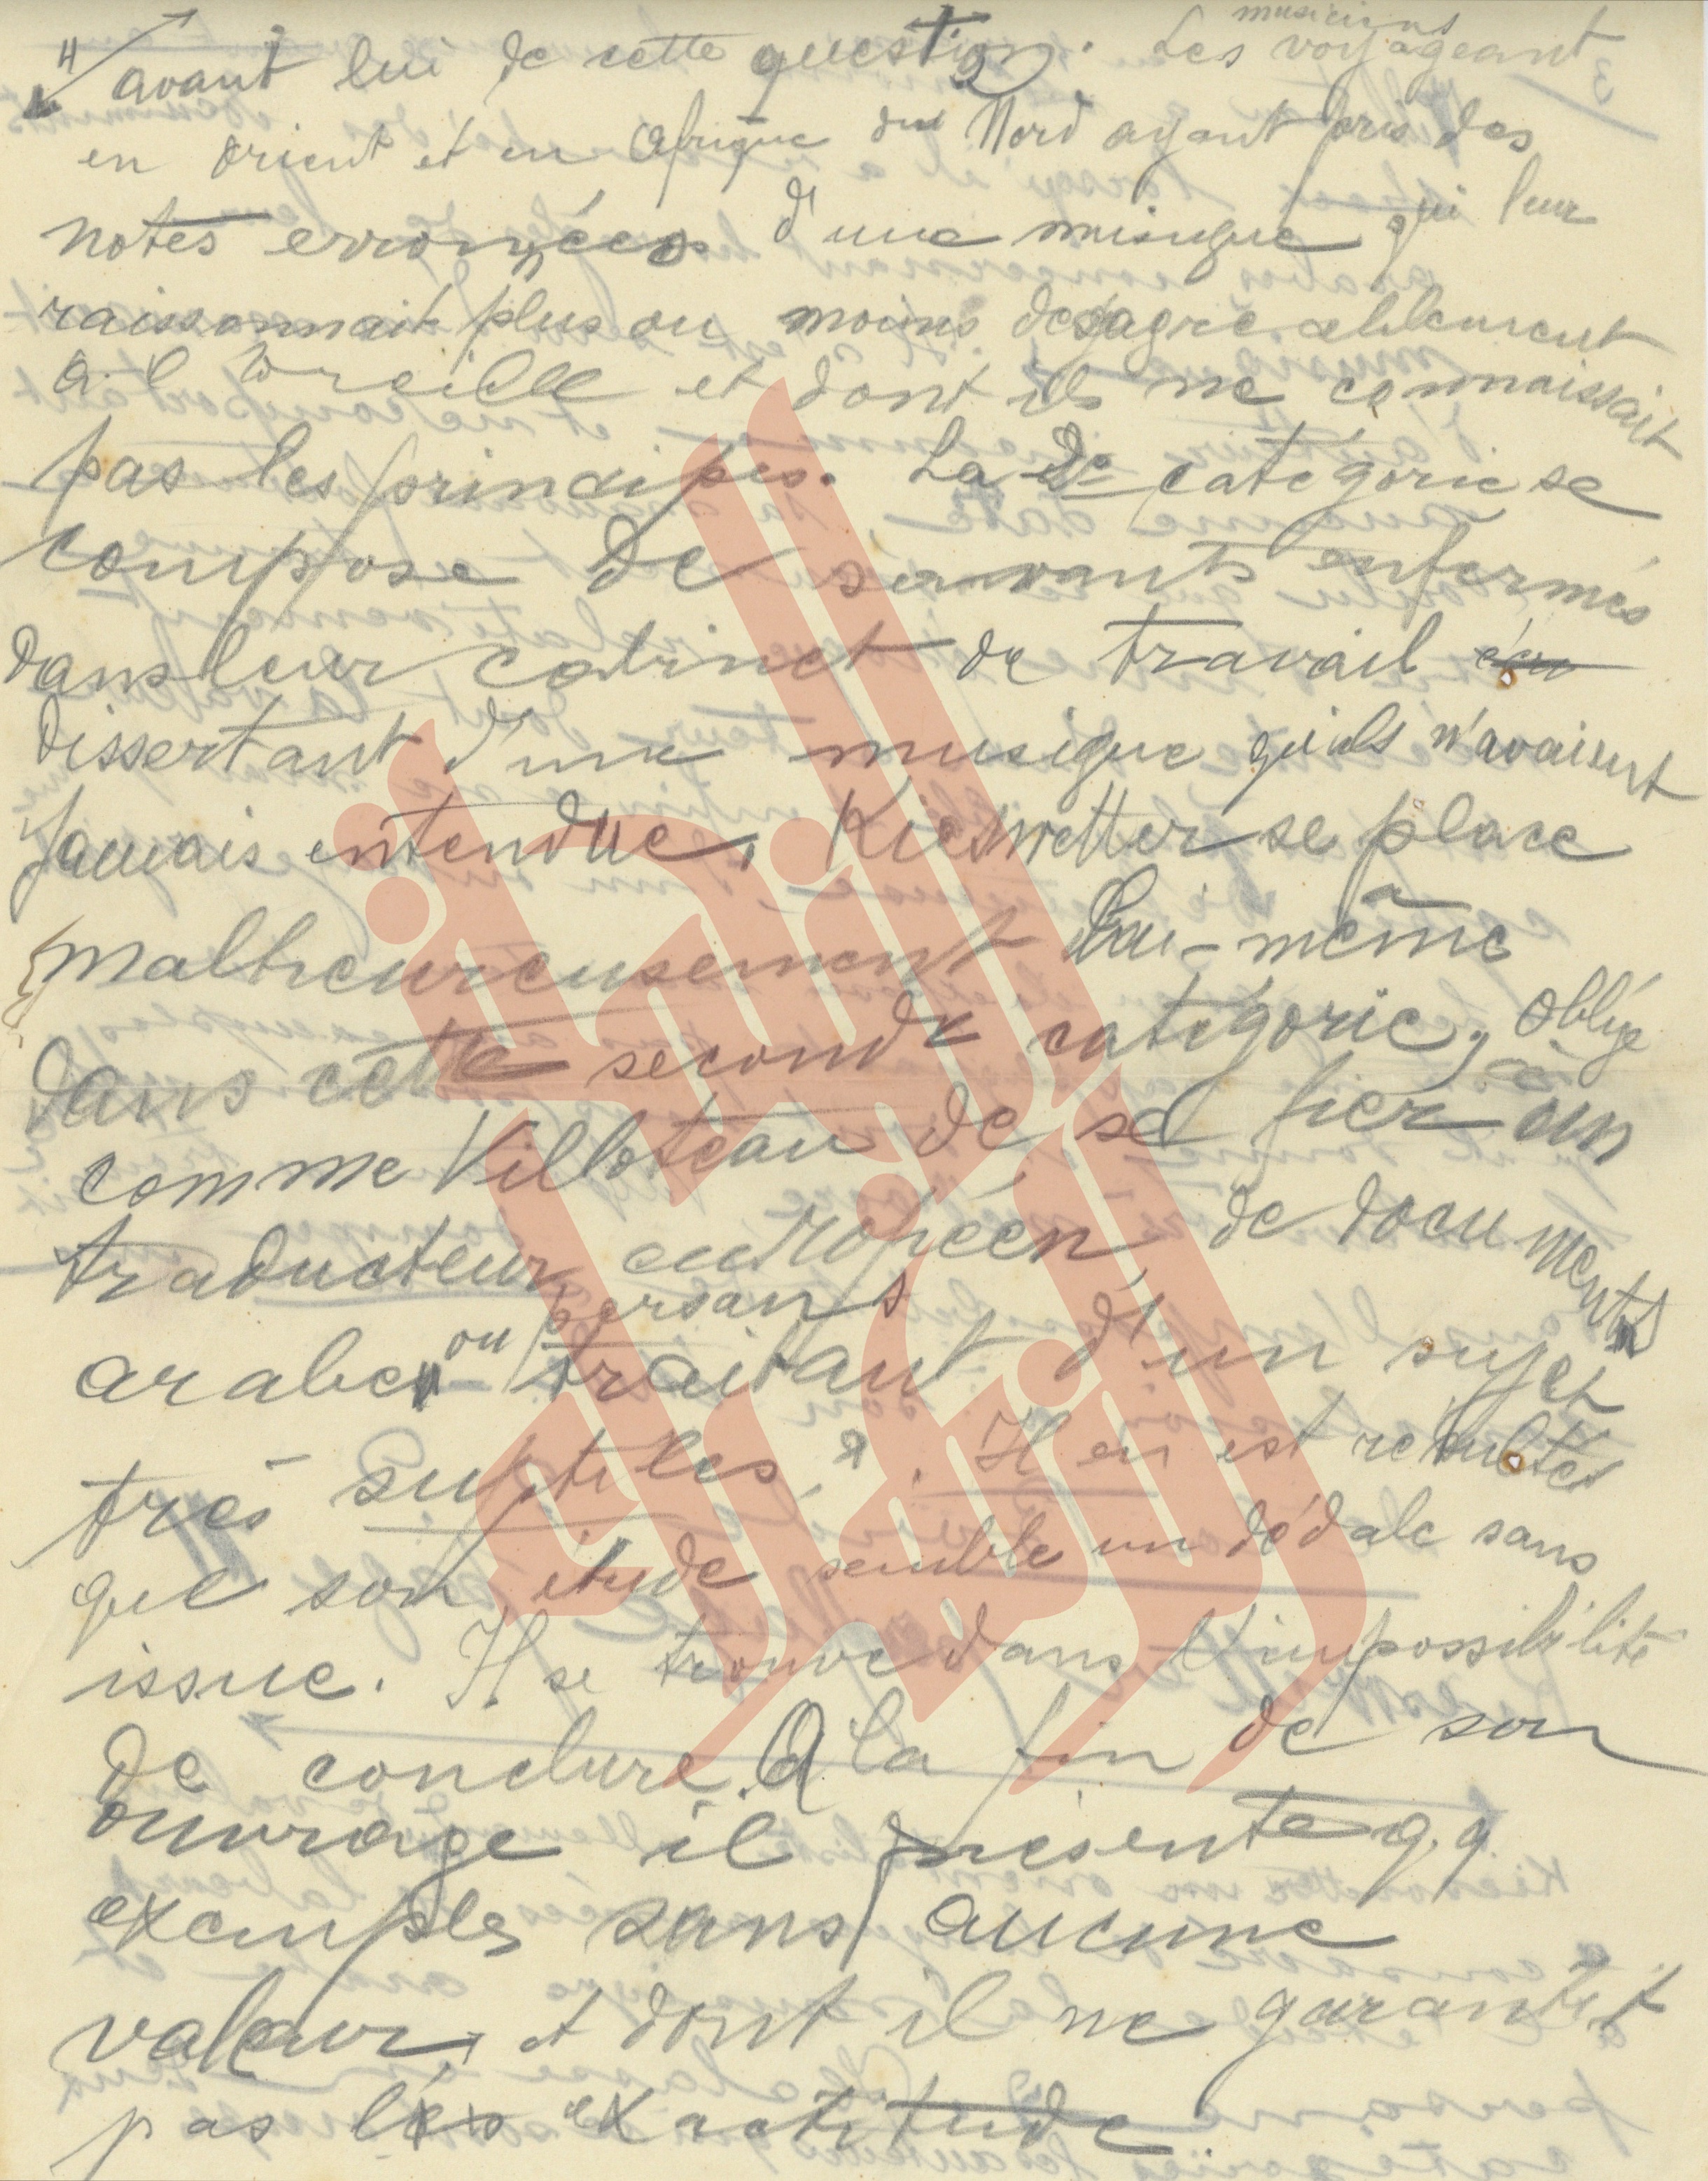 musiciens
4 avant lui de cette question. Les voyageant 3
en Orient et en Afrique du Nord ayant pris des
notes erronnées d'une musique qui leur
raissonnait plus ou moins desagreablement
à l'oreille et dont ils ne connaissait
pas les principes. La 2e catégorie se
compose de savants enfermés
dans leur cabinet de travail
Dissertant d'une musique qu'ils n'avaient
Jamais entendue, Kieswetter se place
malheureusement Lui-même
dans cette seconde catégorie, obligé
comme Villoteau de se fier à un
traducteur européen, de documents
ou persans
arabes traitant d'un sujet
très suptiles. Il en est resultés
que son étude semble un dédale sans
issue. Il se trouve dans l'impossibilité
de conclure. A la fin de son
ouvrage il présente q.q.
exemples sans aucune
valeur, et dont il ne garantit
pas l'exactitude.